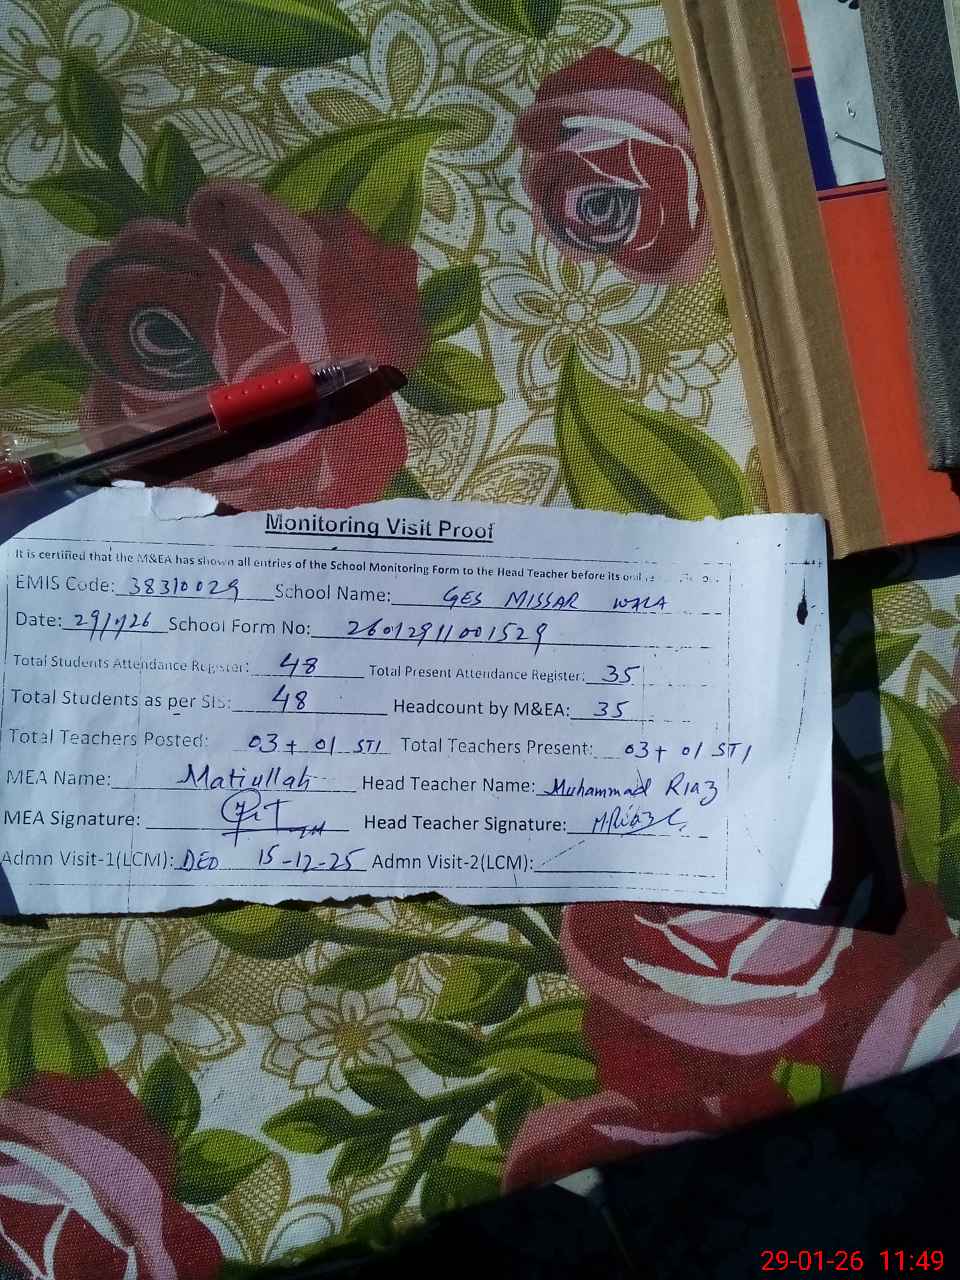 Monitoring Visit Proof
It is certified that the M&EA has shown all entries of the School Monitoring Form to the Head Teacher before its
EMIS Code: 38310029 School Name: GES MISSAR WALA
Date: 29/1/26 School Form No: 26012911001529
Total Students Attendance Register: 48 Total Present Attendance Register: 35
Total Students as per SIS: 48 Headcount by M&EA: 35
Total Teachers Posted: 03+ 01 STI Total Teachers Present: 03+ 01 STI
MEA Name: Matiullah Head Teacher Name: Muhammad Riaz
MEA Signature: Head Teacher Signature: M.Riaz
Admn Visit-1(LCM): DEO 15-12-25 Admn Visit-2(LCM):
29-01-26 11:49